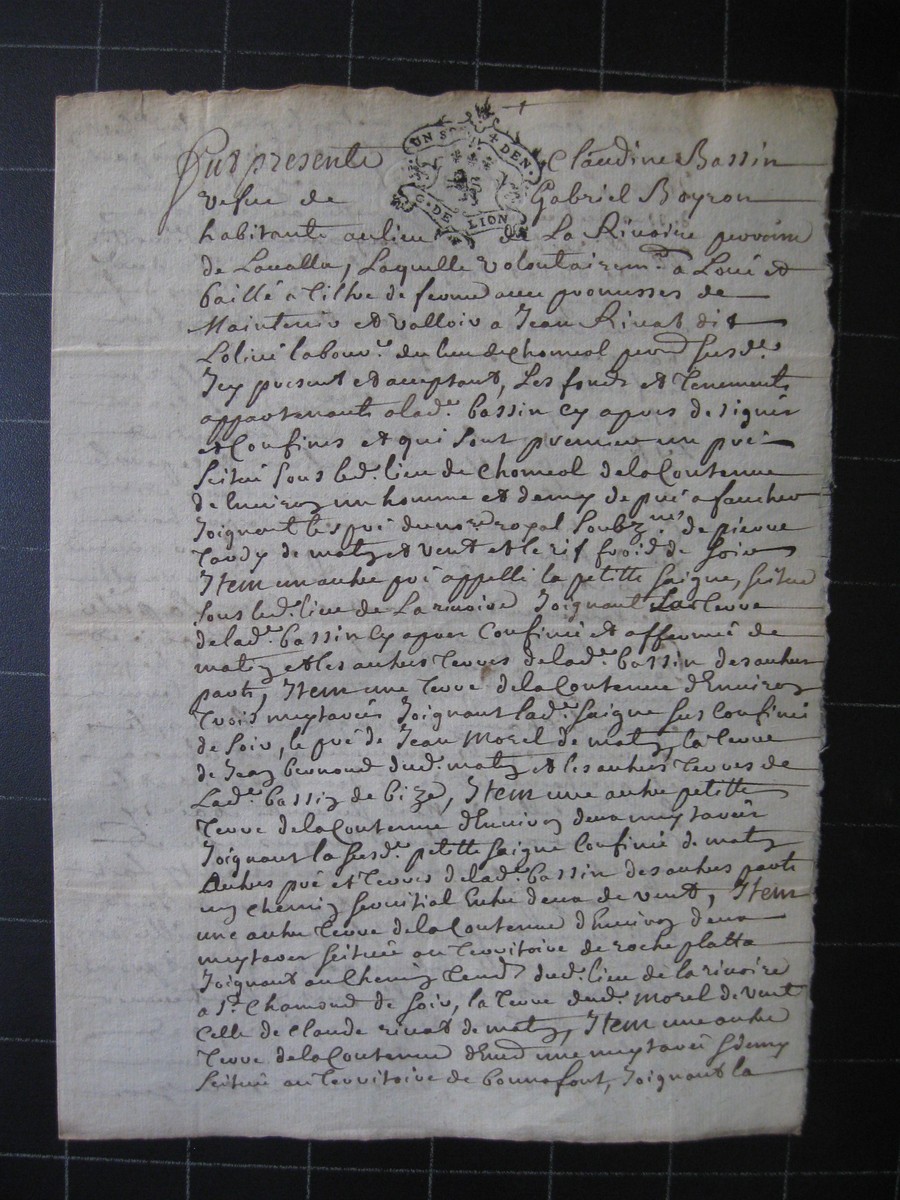 UN SOL
DEN
G. DE LION
Fut presente Claudine Bassin
vefue de Gabriel Boyron
habitante au lieu de La Rivoire parroisse
de Lavalla, Laquelle volontairemt. a Loué et
baillé a tiltre de ferme avec promesses de
Maintenir et valloir a Jean Rivat dit
labourr. du lieu de Chomeol susde.
Icy present et acceptant, Les fonds et tenements
appartenants a lade. bassin cy apres designés
et Confinés et qui sont premier un pré
scitué sous led. lieu de Chomeol de la Contenue
d'environ un homme et demy de pré a faucher
Joignant les pré du royal de pierre
tardy de matin et vent et le rif froid de soir
Item un autre pré appellé la petitte saigne, scitué
sous led. lieu de La rivoire Joignant La terre
de lade. bassin cy apres Confinée et affermée de
matin et les autres terres de lade. bassin des autres
parts, Item une terre de la Contenue d'Environ
trois meytarées Joignant lade. saigne sus confinée
de soir, le pré de Jean Morel de matin, la terre
de Jean dud. matin et les autres terres de
Lade. bassin de bize, Item une autre petitte
terre de la Contenue d'Environ deux meytarées
Joignant la susde. petitte saigne Confinée de matin
Autres pré et terres de lade. bassin des autres parts
un chemin Entre deux de vent, Item
une autre terre de la Contenue d'Environ deux
meytarées scituée au territoire de roche platta
Joignant au Chemin tendt. dud. lieu de la rivoire
a St. Chamond de soir, la terre dud. Morel de vent
Celle de Claude rivat de matin, Item une autre
terre de la Contenue une meytarée demy
scituée au territoire de bonnefont, Joignant la